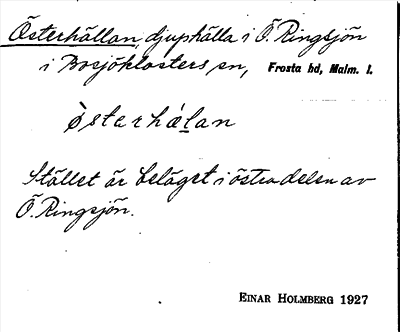 Österhällan, djuphålla i Ö. Ringsjön
i Bosjöklosters sn, Frosta hd, Malm. l.
ò̀sterhálan
Stället är beläget i östra delen av
Ö. Ringsjön.
EINAR HOLMBERG 1927